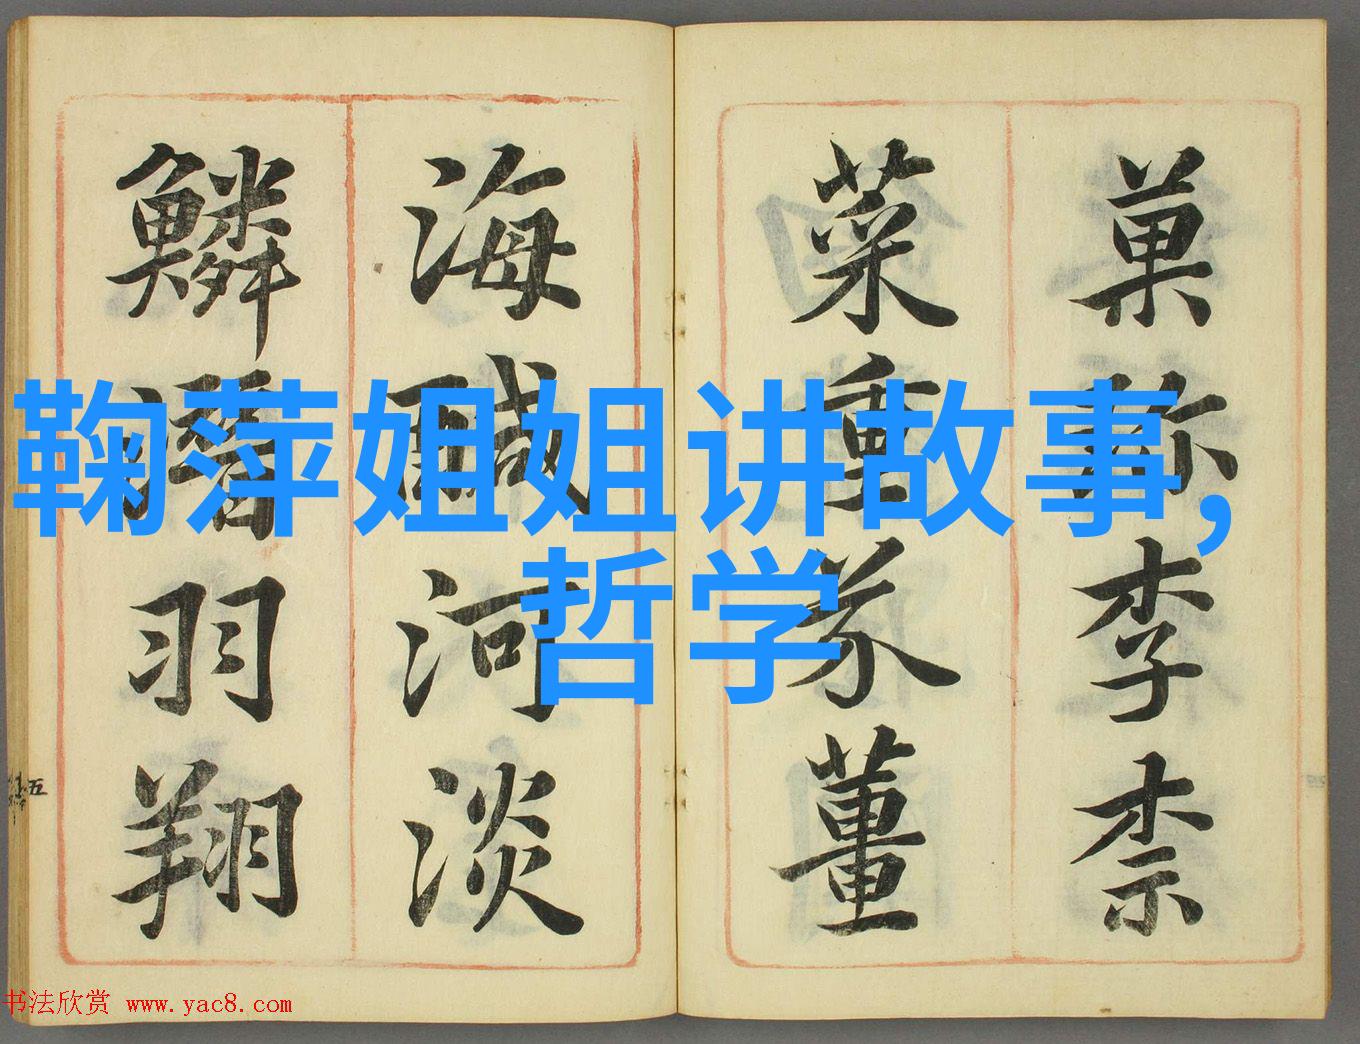 鞠萍姐姐讲故事,
哲学
菓珎李柰
菜重芥董
海醎河淡
鱗潛羽翔
五
书法欣赏 www.yac8.com